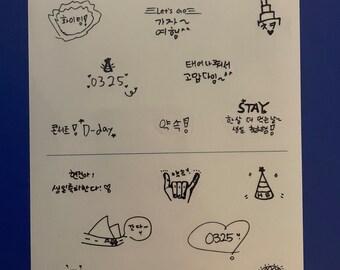 화이팅!
Let's Go
가자~
여행~
0325
태어나줘서
고맙다잉~
콘서트! D-day
약속!
STAY
한살 더 먹는날~
생일 축하해!
현진아!
생일축하한다!
간다~
0325
H B